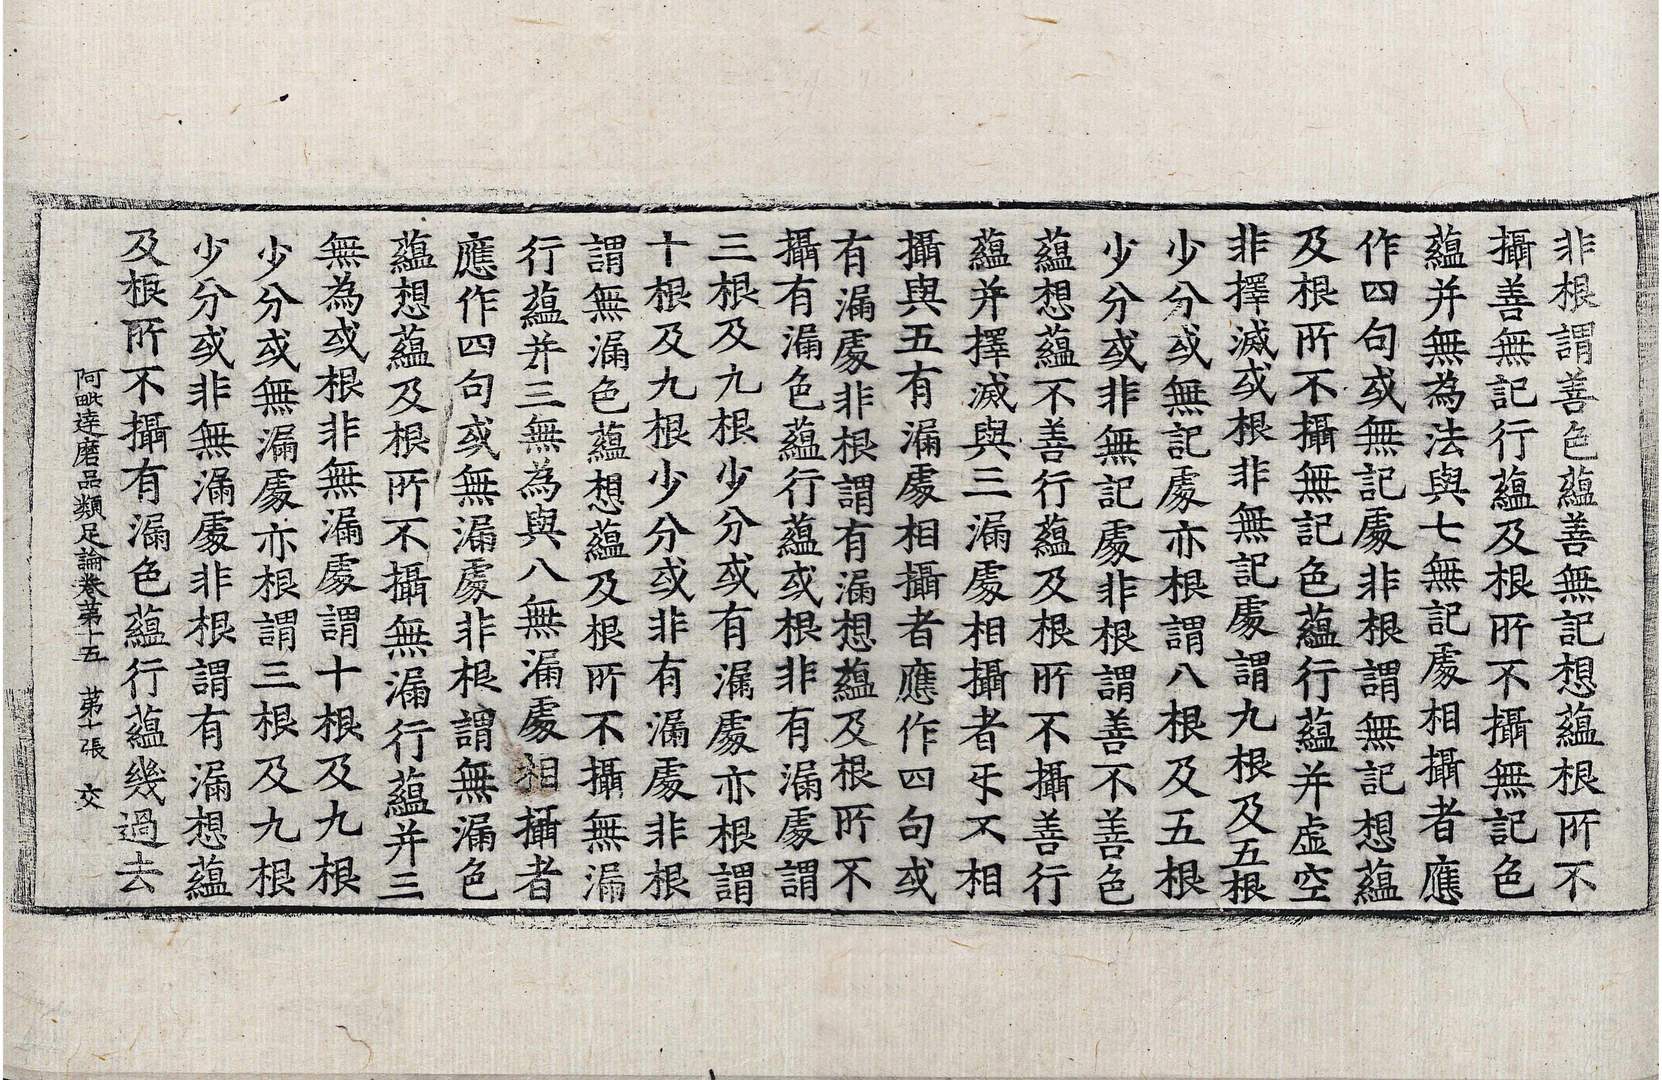 非根謂善色蘊善無記想蘊根所不
攝善無記行蘊及根所不攝無記色
蘊并無為法與七無記處相攝者應
作四句或無記處非根謂無記想蘊
及根所不攝無記色蘊行蘊并虛空
非擇滅或根非無記處謂九根及五根
少分或無記處亦根謂八根及五根
少分或非無記處非根謂善不善色
蘊想蘊不善行蘊及根所不攝善行
蘊并擇滅與三漏處相攝者㸦不相
攝與五有漏處相攝者應作四句或
有漏處非根謂有漏想蘊及根所不
攝有漏色蘊行蘊或根非有漏處謂
三根及九根少分或有漏處亦根謂
十根及九根少分或非有漏處非根
謂無漏色蘊想蘊及根所不攝無漏
行蘊并三無為與八無漏處相攝者
應作四句或無漏處非根謂無漏色
蘊想蘊及根所不攝無漏行蘊并三
無為或根非無漏處謂十根及九根
少分或無漏處亦根謂三根及九根
少分或非無漏處非根謂有漏想蘊
及根所不攝有漏色蘊行蘊幾過去
阿毗達磨品類足論卷苐十五 苐十張 交